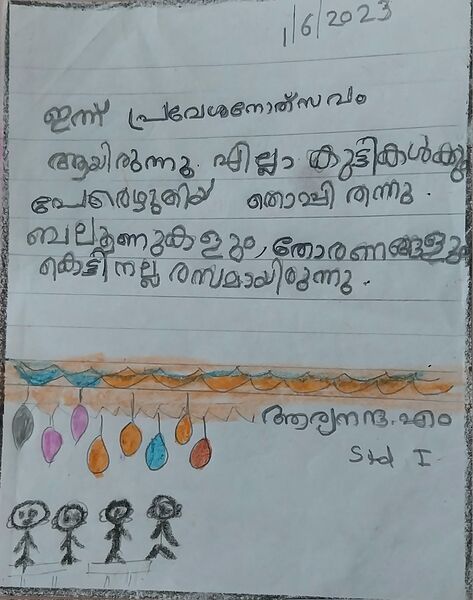 1/6/2023
ഇന്ന് പ്രവേശനോത്സവം
ആയിരുന്നു. എല്ലാ കുട്ടികൾക്കു
പേരെഴുതിയ തൊപ്പി തന്നു.
ബലൂണുകളും, തോരണങ്ങളും
കെട്ടി നല്ല രസമായിരുന്നു.
ആര്യനന്ദ. എം
Std I